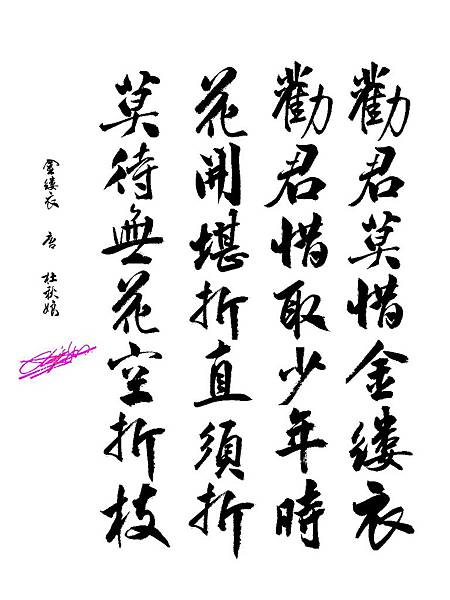 勸君莫惜金縷衣
勸君惜取少年時
花開堪折直須折
莫待無花空折枝
金縷衣 唐 杜秋娘